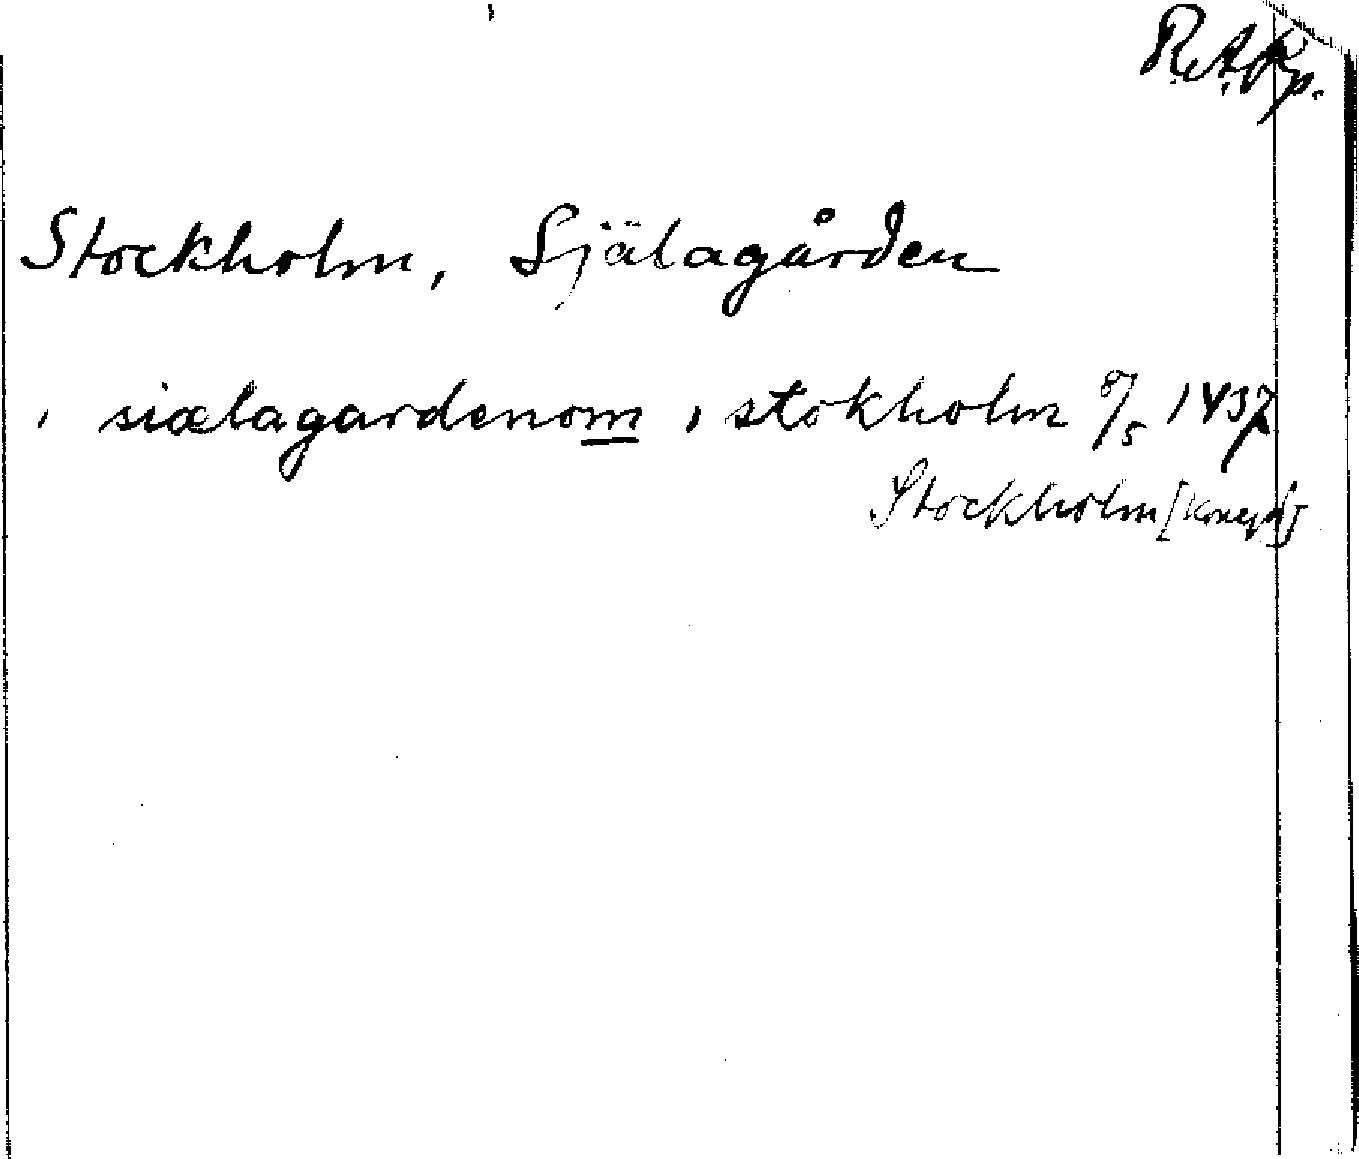 R.A.Pp.
Stockholm, Själagården
i siælagardenom i stokholm 8/5 1437
Stockholm